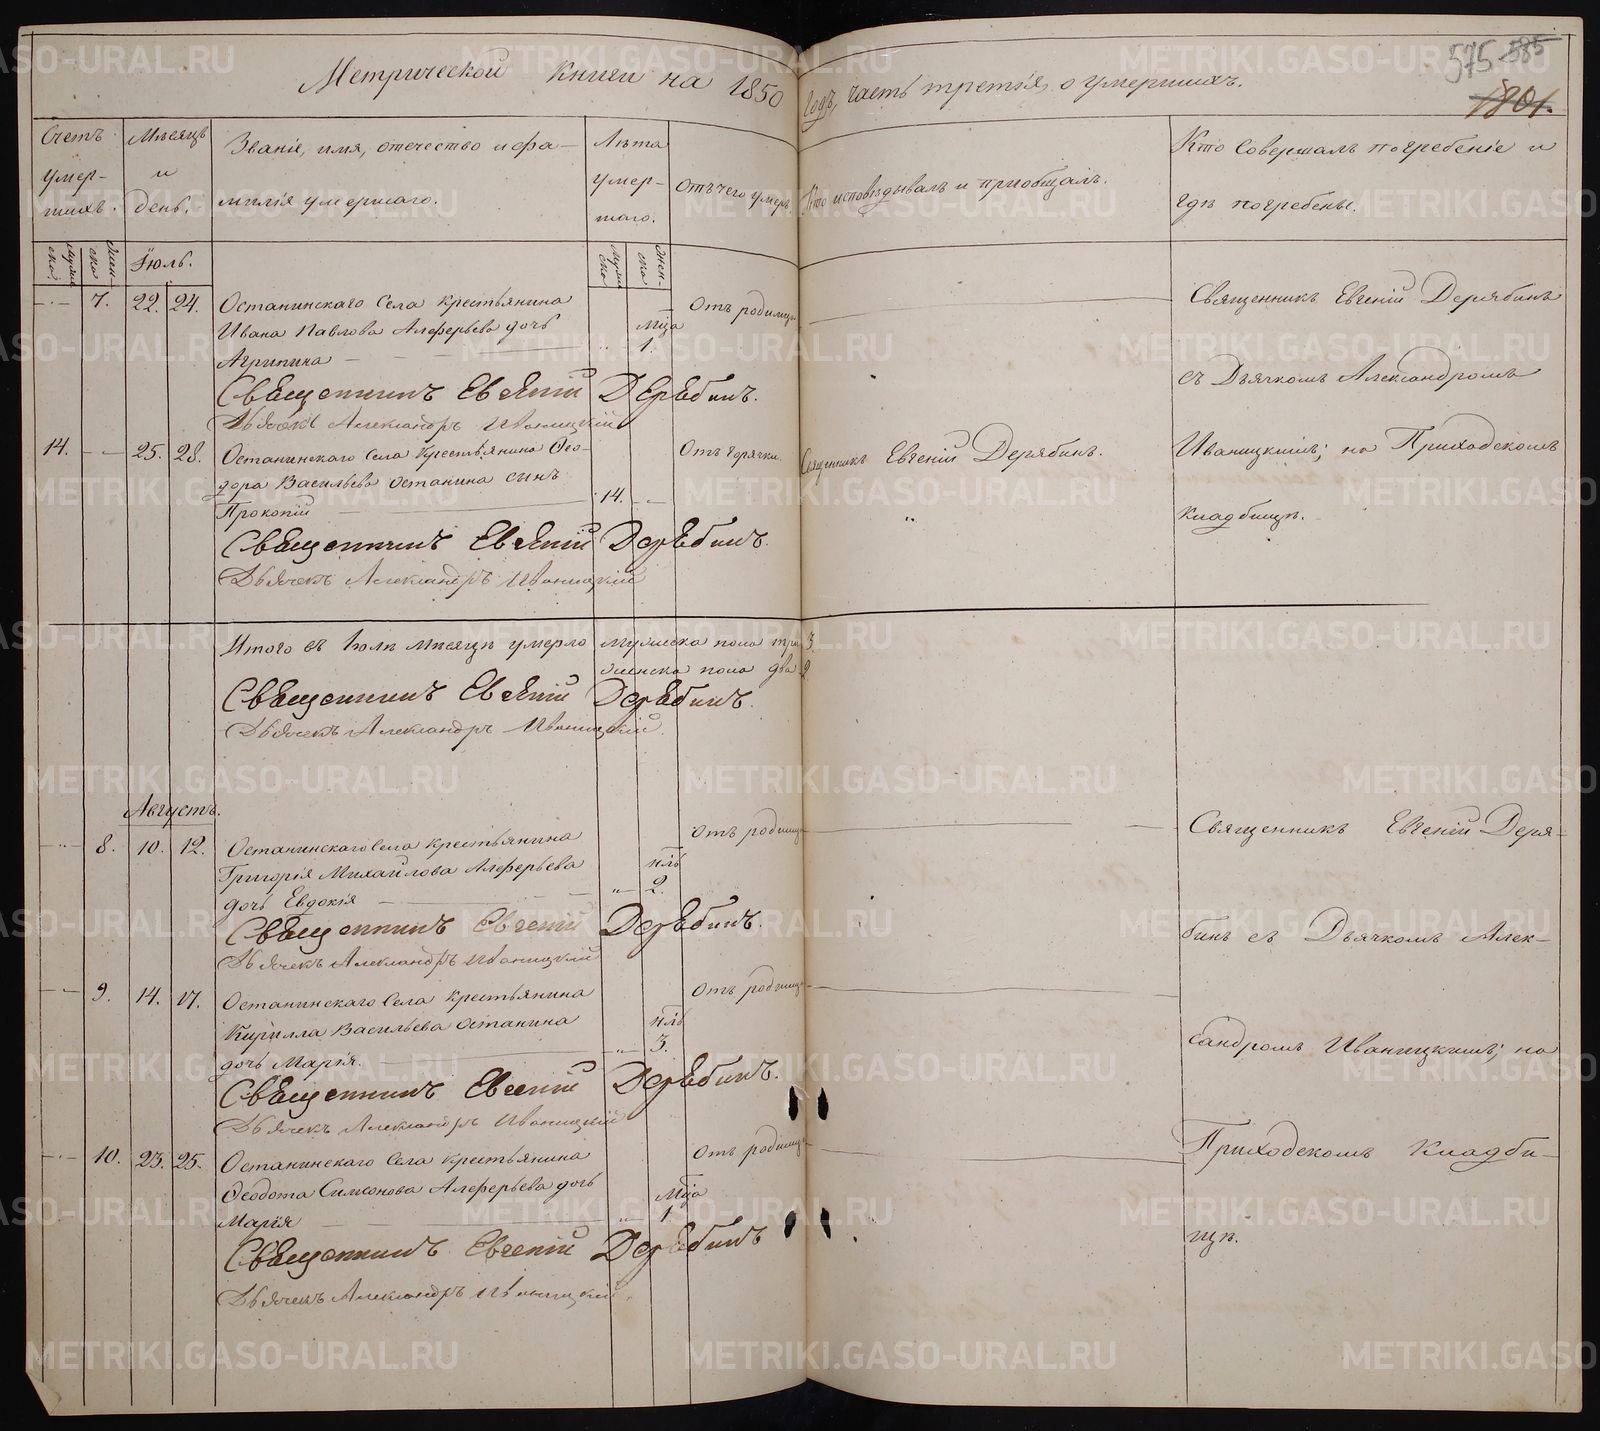 575 585
1801.
Метрической книги на 1850 годъ, часть третія, о умершихъ.
Счетъ умершихъ.
Мѣсяцъ и день.
Званіе, имя, отечество и фамилія умершаго.
Лѣта умершаго.
Отъ чего умеръ.
Кто исповѣдывалъ и пріобщалъ.
Кто совершалъ погребеніе и
гдѣ погребены.
Іюль.
7. 22. 24.
Останинскаго Села крестьянина
Ивана Павлова Алферьева дочь
Агрипина
Мца
1.
Отъ родимца
Священникъ Евгеній Дерябинъ.
Дьячекъ Александръ Иваницкій
14. 25. 28.
Останинскаго Села крестьянина Ѳео-
дора Васильева Останина сынъ
Прокопій
14.
Отъ горячки.
Священникъ Евгеній Дерябинъ.
Священникъ Евгеній Дерябинъ.
Дьячекъ Александръ Иваницкій
Священникъ Евгеній Дерябинъ
съ Дьячкомъ Александромъ
Иваницкимъ; на Приходскомъ
кладбищѣ.
Итого въ Іюлѣ мѣсяцѣ умерло мужеска пола три 3.
женска пола два 2
Священникъ Евгеній Дерябинъ.
Дьячекъ Александръ Иваницкій.
Августъ.
8. 10. 12.
Останинскаго Села крестьянина
Григорія Михайлова Алферьева
дочь Евдокія
нль
2.
Отъ родимца
Священникъ Евгеній Дерябинъ.
Дьячекъ Александръ Иваницкій
9. 14. 17.
Останинскаго Села крестьянина
Кирилла Васильева Останина
дочь Марія.
нль
3.
Отъ родимца
Священникъ Евгеній Дерябинъ.
Дьячекъ Александръ Иваницкій
10. 23. 25.
Останинскаго Села крестьянина
Ѳеодота Симеонова Алферьева дочь
Марія
Мца
1.
Отъ родимца
Священникъ Евгеній Дерябинъ
Дьячекъ Александръ Иваницкій.
Священникъ Евгеній Деря-
бинъ съ Дьячкомъ Алек-
сандромъ Иваницкимъ; на
Приходскомъ Кладби-
щѣ.
METRIKI.GASO-URAL.RU